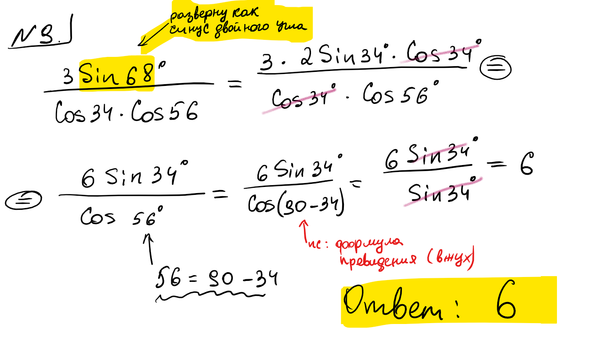 N3.
разверну как
синус двойного угла
3 Sin 68° / Cos 34 · Cos 56 = 3 · 2 Sin 34° · Cos 34° / Cos 34° · Cos 56° =
= 6 Sin 34° / Cos 56° = 6 Sin 34° / Cos(90-34) = 6 Sin 34° / Sin 34° = 6
56 = 90 - 34
пс: формула
приведения (вжух)
Ответ: 6